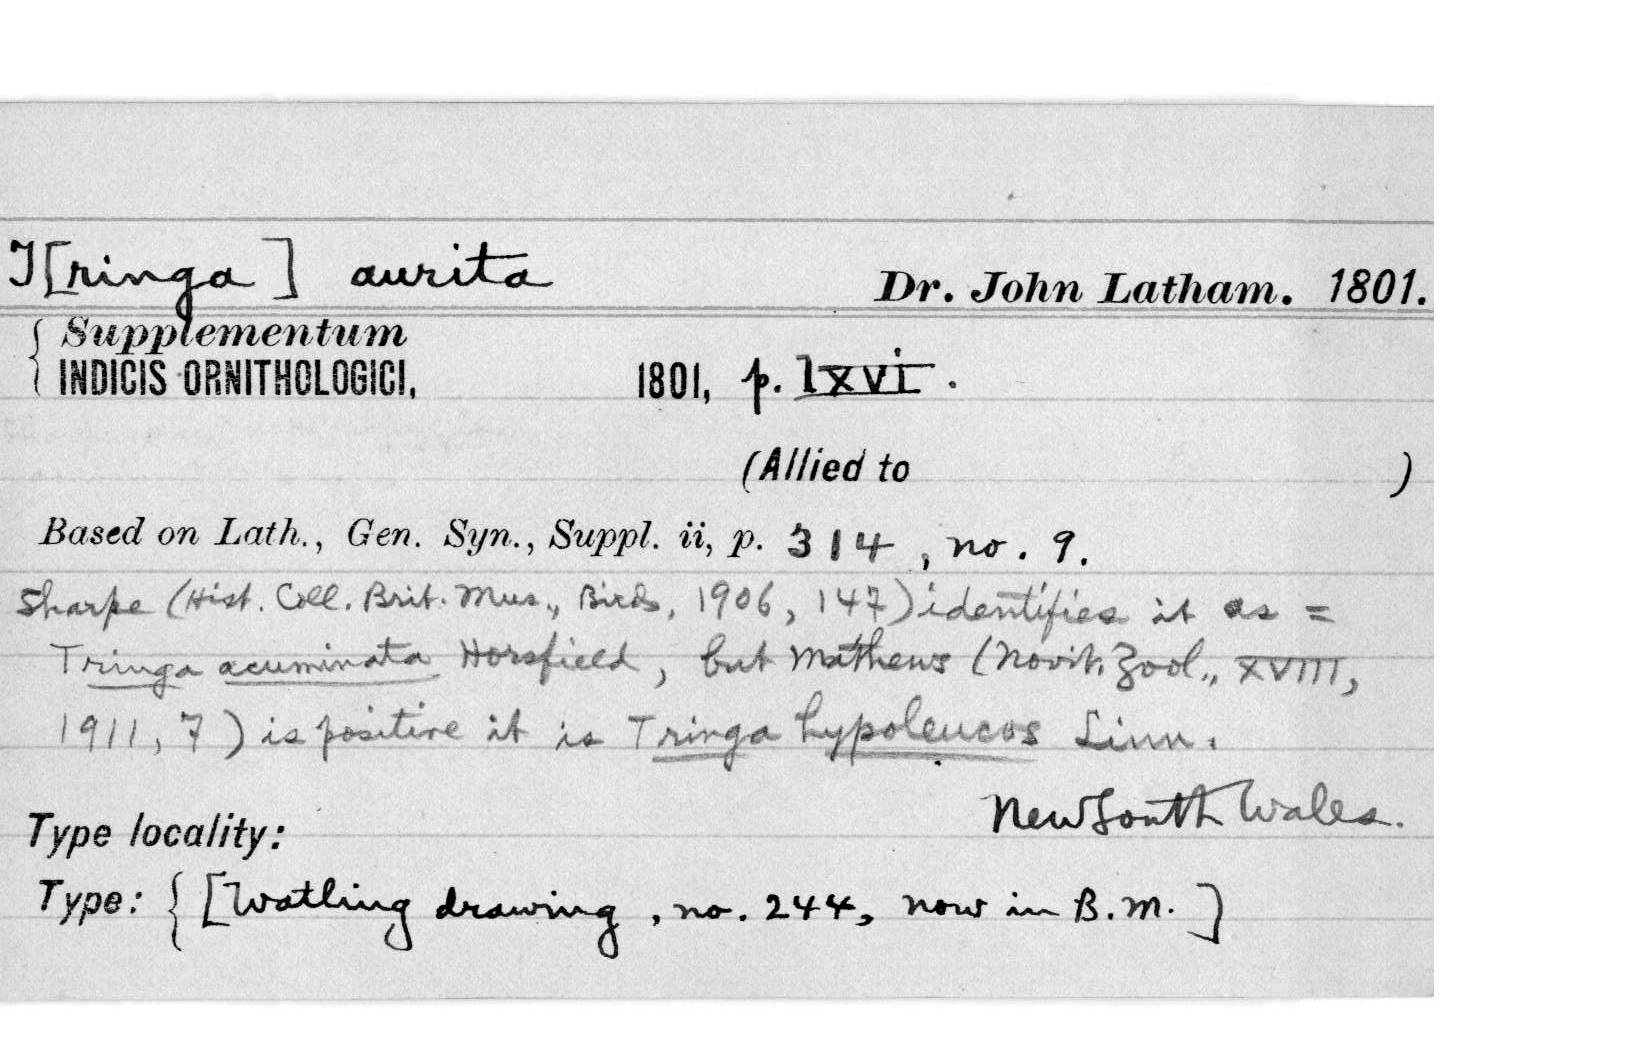 T[ringa] aurita Dr. John Latham. 1801.
{ Supplementum
INDICIS ORNITHOLOGICI, 1801, p. lxvi.
(Allied to )
Based on Lath., Gen. Syn., Suppl. ii, p. 314, no. 9.
Sharpe (Hist. Coll. Brit. Mus., Birds, 1906, 147) identifies it as =
Tringa acuminata Horsfield, but Mathews (Novit. Zool., XVIII,
1911, 7) is positive it is Tringa hypoleucos Linn.
New South Wales.
Type locality:
Type: { [Watling drawing, no. 244, now in B.M.]